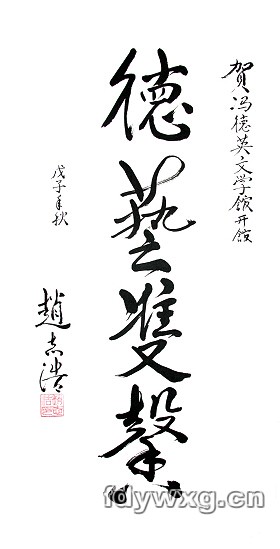 賀冯德英文学馆开馆
德藝雙馨
戊子年秋
趙志浩
fdywxg.cn